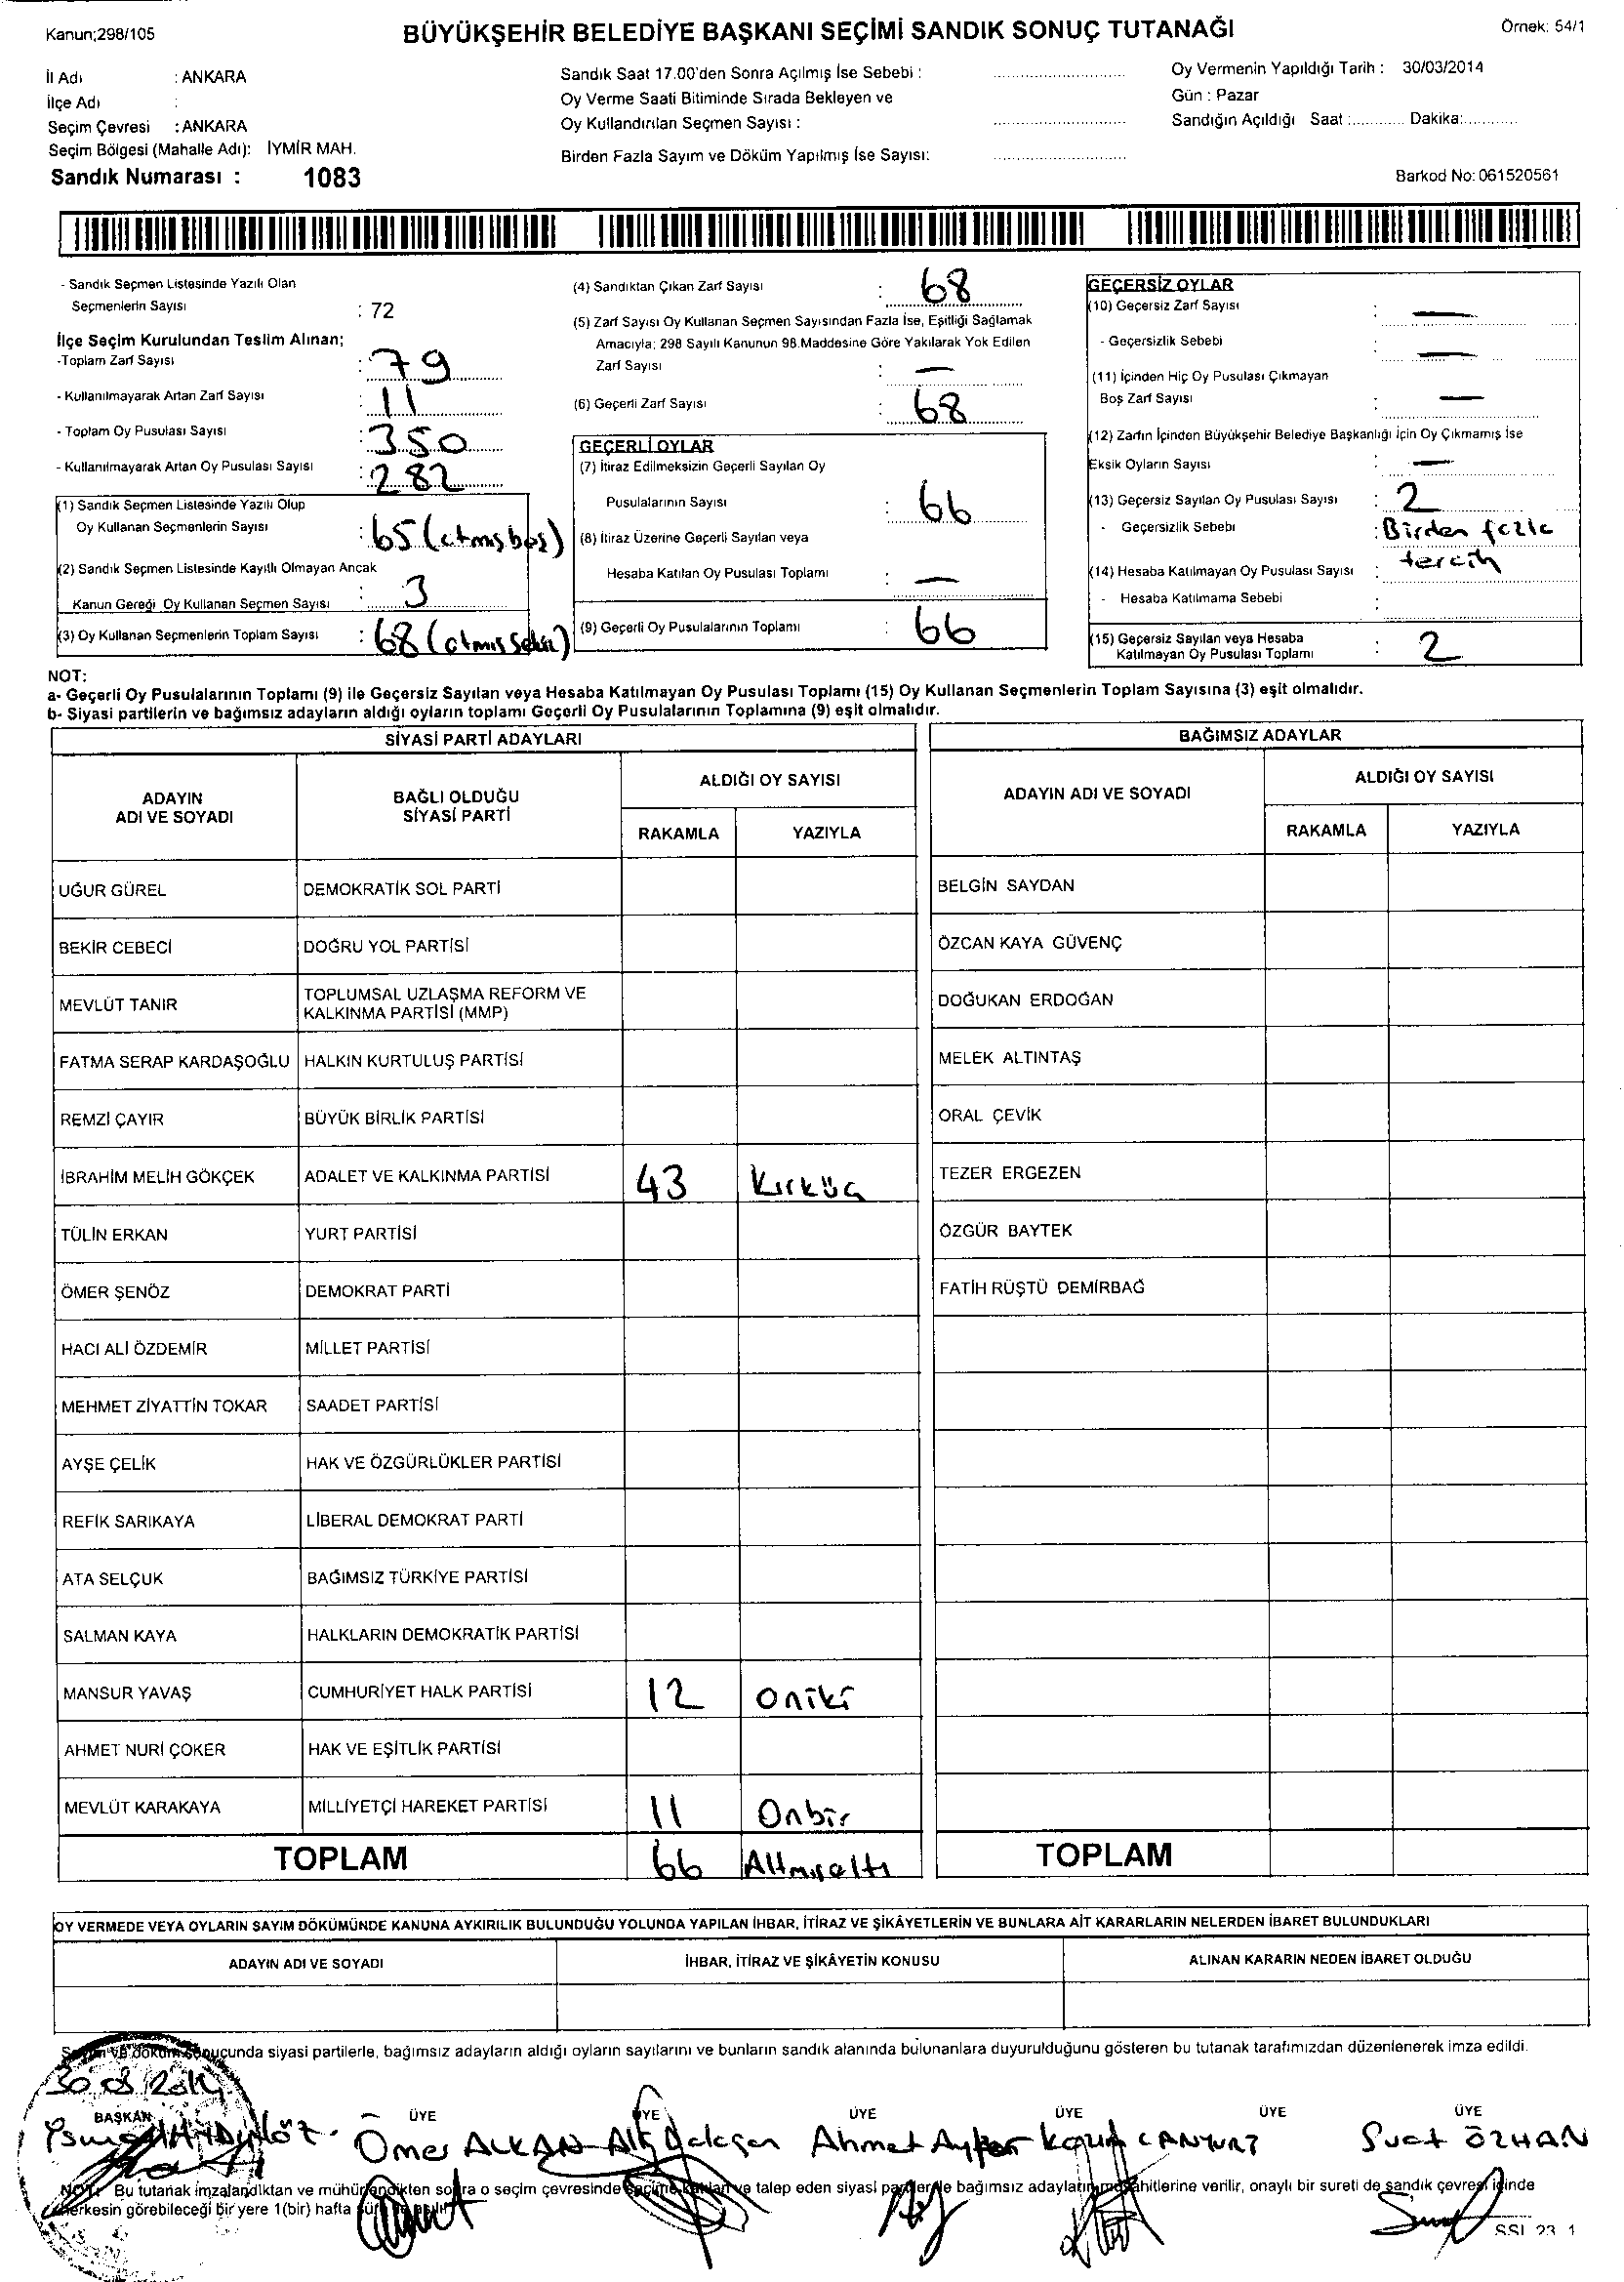 Kanun;298/105
BÜYÜKŞEHİR BELEDİYE BAŞKANI SEÇİMİ SANDIK SONUÇ TUTANAĞI
Örnek: 54/1
İl Adı : ANKARA
İlçe Adı :
Seçim Çevresi : ANKARA
Seçim Bölgesi (Mahalle Adı): İYMİR MAH.
Sandık Numarası : 1083
Sandık Saat 17.00'den Sonra Açılmış İse Sebebi :
Oy Verme Saati Bitiminde Sırada Bekleyen ve
Oy Kullandırılan Seçmen Sayısı :
Birden Fazla Sayım ve Döküm Yapılmış İse Sayısı:
Oy Vermenin Yapıldığı Tarih : 30/03/2014
Gün : Pazar
Sandığın Açıldığı Saat :............ Dakika:............
Barkod No: 061520561
- Sandık Seçmen Listesinde Yazılı Olan
Seçmenlerin Sayısı : 72
İlçe Seçim Kurulundan Teslim Alınan;
-Toplam Zarf Sayısı : 79
- Kullanılmayarak Artan Zarf Sayısı : 11
- Toplam Oy Pusulası Sayısı : 350
- Kullanılmayarak Artan Oy Pusulası Sayısı : 282
(1) Sandık Seçmen Listesinde Yazılı Olup
Oy Kullanan Seçmenlerin Sayısı : 65 (atmışbeş)
(2) Sandık Seçmen Listesinde Kayıtlı Olmayan Ancak
Kanun Gereği Oy Kullanan Seçmen Sayısı : 3
(3) Oy Kullanan Seçmenlerin Toplam Sayısı : 68 (atmışsekiz)
(4) Sandıktan Çıkan Zarf Sayısı : 68
(5) Zarf Sayısı Oy Kullanan Seçmen Sayısından Fazla İse, Eşitliği Sağlamak
Amacıyla; 298 Sayılı Kanunun 98.Maddesine Göre Yakılarak Yok Edilen
Zarf Sayısı : —
(6) Geçerli Zarf Sayısı : 68
GEÇERLİ OYLAR
(7) İtiraz Edilmeksizin Geçerli Sayılan Oy
Pusulalarının Sayısı : 66
(8) İtiraz Üzerine Geçerli Sayılan veya
Hesaba Katılan Oy Pusulası Toplamı : —
(9) Geçerli Oy Pusulalarının Toplamı : 66
GEÇERSİZ OYLAR
(10) Geçersiz Zarf Sayısı : —
- Geçersizlik Sebebi : —
(11) İçinden Hiç Oy Pusulası Çıkmayan
Boş Zarf Sayısı : —
(12) Zarfın İçinden Büyükşehir Belediye Başkanlığı İçin Oy Çıkmamış İse
Eksik Oyların Sayısı : —
(13) Geçersiz Sayılan Oy Pusulası Sayısı : 2
- Geçersizlik Sebebi : Birden fazla
tercih
(14) Hesaba Katılmayan Oy Pusulası Sayısı :
- Hesaba Katılmama Sebebi :
(15) Geçersiz Sayılan veya Hesaba
Katılmayan Oy Pusulası Toplamı : 2
NOT:
a- Geçerli Oy Pusulalarının Toplamı (9) ile Geçersiz Sayılan veya Hesaba Katılmayan Oy Pusulası Toplamı (15) Oy Kullanan Seçmenlerin Toplam Sayısına (3) eşit olmalıdır.
b- Siyasi partilerin ve bağımsız adayların aldığı oyların toplamı Geçerli Oy Pusulalarının Toplamına (9) eşit olmalıdır.
SİYASİ PARTİ ADAYLARI
ADAYIN
ADI VE SOYADI
BAĞLI OLDUĞU
SİYASİ PARTİ
ALDIĞI OY SAYISI
RAKAMLA YAZIYLA
UĞUR GÜREL DEMOKRATİK SOL PARTİ
BEKİR CEBECİ DOĞRU YOL PARTİSİ
MEVLÜT TANIR TOPLUMSAL UZLAŞMA REFORM VE
KALKINMA PARTİSİ (MMP)
FATMA SERAP KARDAŞOĞLU HALKIN KURTULUŞ PARTİSİ
REMZİ ÇAYIR BÜYÜK BİRLİK PARTİSİ
İBRAHİM MELİH GÖKÇEK ADALET VE KALKINMA PARTİSİ 43 Kırküç
TÜLİN ERKAN YURT PARTİSİ
ÖMER ŞENÖZ DEMOKRAT PARTİ
HACI ALİ ÖZDEMİR MİLLET PARTİSİ
MEHMET ZİYATTİN TOKAR SAADET PARTİSİ
AYŞE ÇELİK HAK VE ÖZGÜRLÜKLER PARTİSİ
REFİK SARIKAYA LİBERAL DEMOKRAT PARTİ
ATA SELÇUK BAĞIMSIZ TÜRKİYE PARTİSİ
SALMAN KAYA HALKLARIN DEMOKRATİK PARTİSİ
MANSUR YAVAŞ CUMHURİYET HALK PARTİSİ 12 Oniki
AHMET NURİ ÇOKER HAK VE EŞİTLİK PARTİSİ
MEVLÜT KARAKAYA MİLLİYETÇİ HAREKET PARTİSİ 11 Onbir
TOPLAM 66 Altmışaltı
BAĞIMSIZ ADAYLAR
ADAYIN ADI VE SOYADI
ALDIĞI OY SAYISI
RAKAMLA YAZIYLA
BELGİN SAYDAN
ÖZCAN KAYA GÜVENÇ
DOĞUKAN ERDOĞAN
MELEK ALTINTAŞ
ORAL ÇEVİK
TEZER ERGEZEN
ÖZGÜR BAYTEK
FATİH RÜŞTÜ DEMİRBAĞ
TOPLAM
OY VERMEDE VEYA OYLARIN SAYIM DÖKÜMÜNDE KANUNA AYKIRILIK BULUNDUĞU YOLUNDA YAPILAN İHBAR, İTİRAZ VE ŞİKÂYETLERİN VE BUNLARA AİT KARARLARIN NELERDEN İBARET BULUNDUKLARI
ADAYIN ADI VE SOYADI İHBAR, İTİRAZ VE ŞİKÂYETİN KONUSU ALINAN KARARIN NEDEN İBARET OLDUĞU
Sayım ve döküm sonucunda siyasi partilerle, bağımsız adayların aldığı oyların sayılarını ve bunların sandık alanında bulunanlara duyurulduğunu gösteren bu tutanak tarafımızdan düzenlenerek imza edildi.
30.03.2014
BAŞKAN ÜYE ÜYE ÜYE ÜYE ÜYE ÜYE
Ömer ALKAN Ahmet CANYURT Suat ÖZHAN
NOT: Bu tutanak imzalandıktan ve mühürlendikten sonra o seçim çevresinde seçime katılan ve talep eden siyasi partilerle bağımsız adayların müşahitlerine verilir, onaylı bir sureti de sandık çevresi içinde
herkesin görebileceği bir yere 1(bir) hafta süre ile asılır.